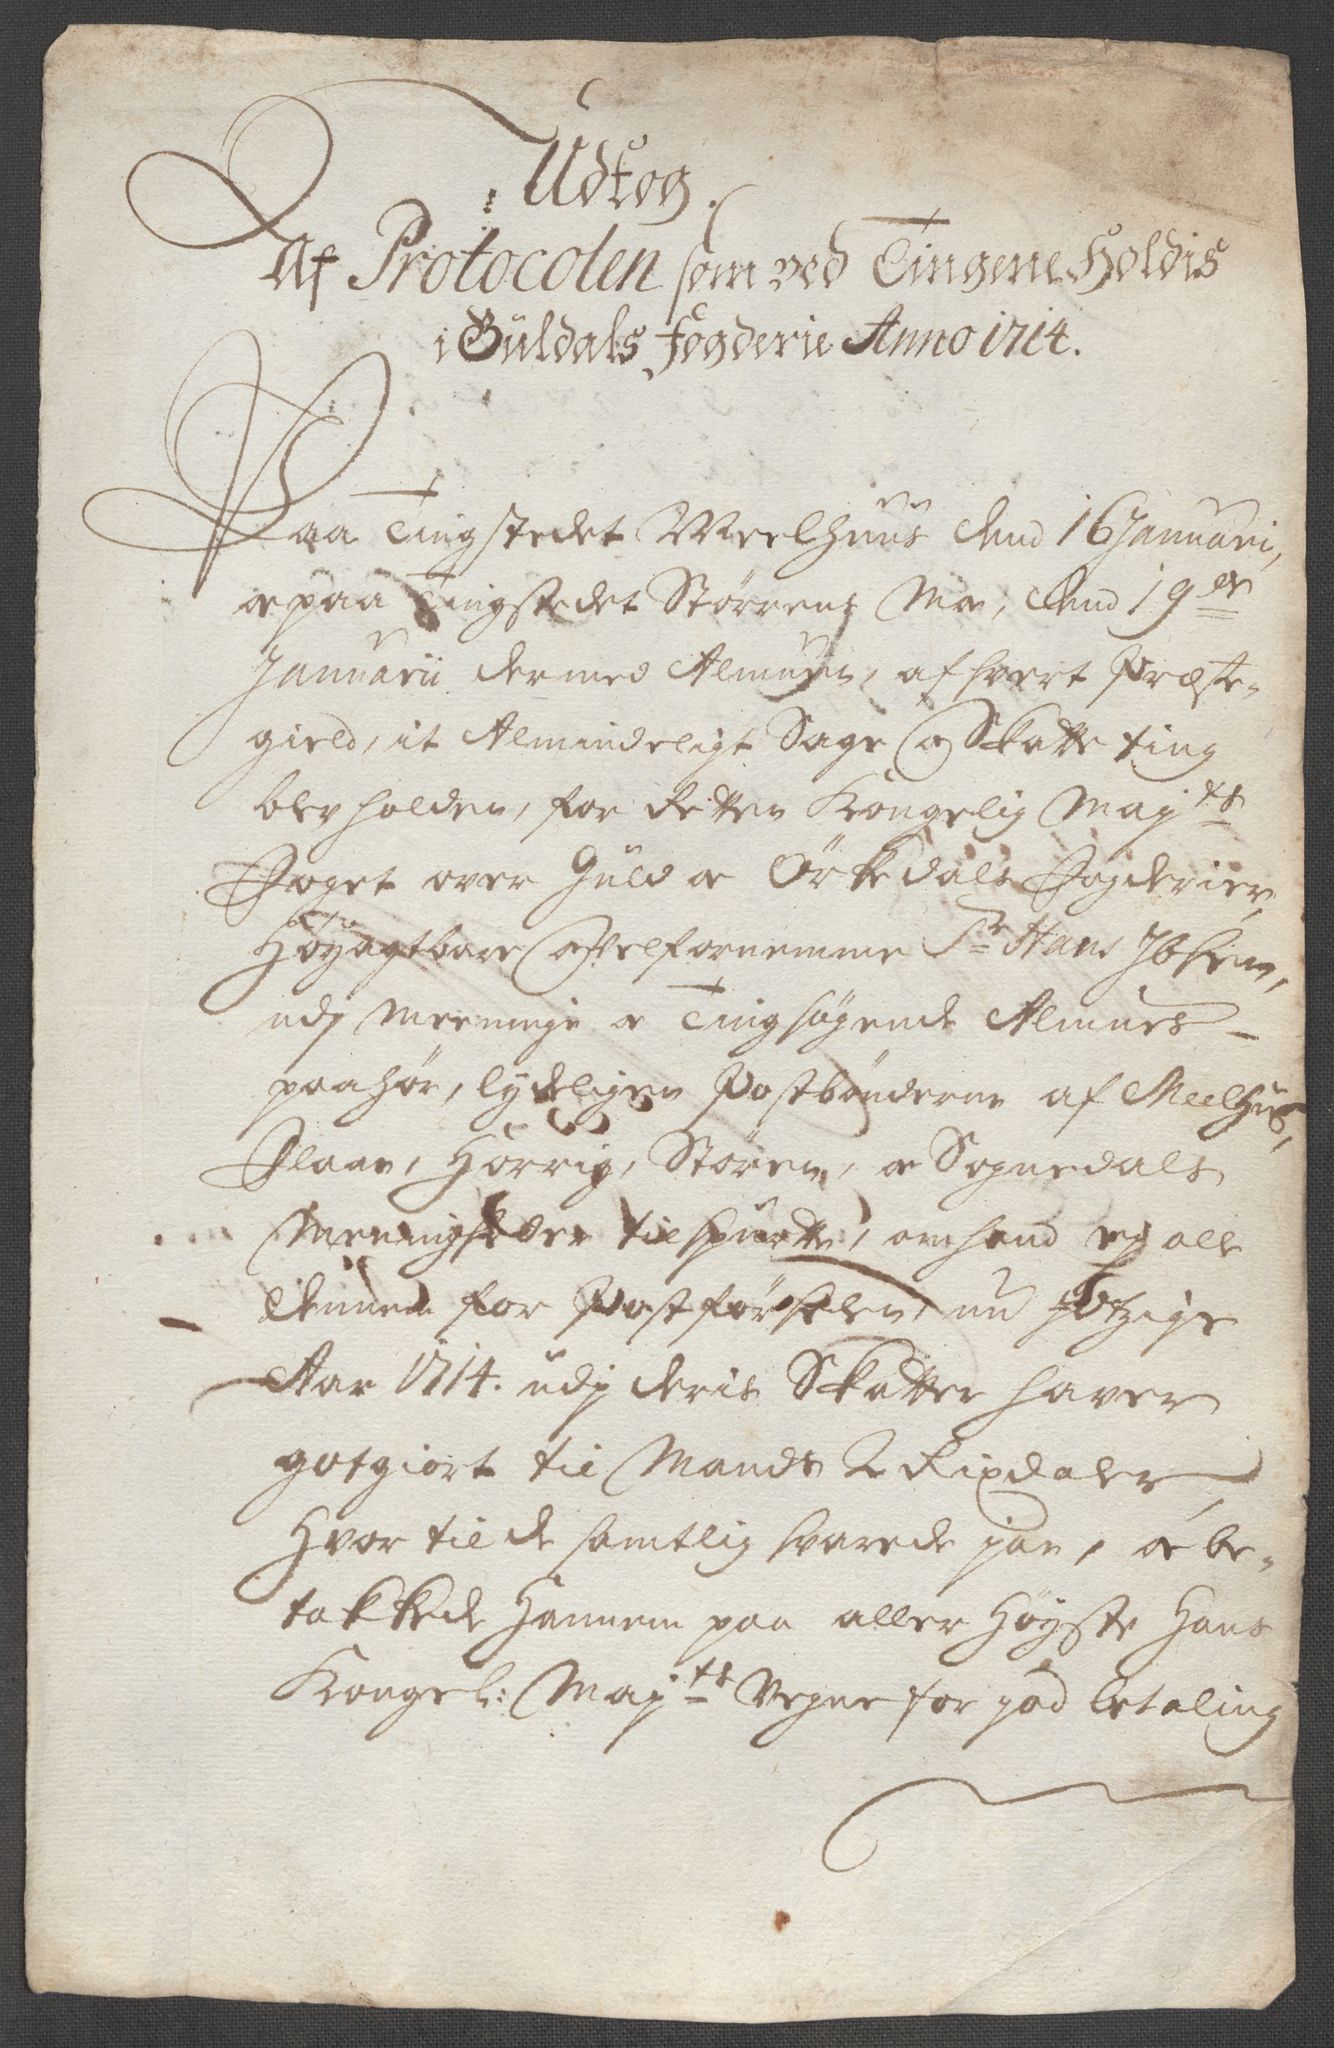 Udtog.
Af Protocolen som ved Tingene Holdis
i Guldals Fogderie Anno 1714.
Paa Tingstedet Meelhuus dend 16 Januari,
og paa Tingstedet Størrens Moe, dend 19de
Januarii der med Almuen, af hvert Præste-
gield, it Almindeligt Sage og Skatte ting
blev holden, for Retten Kongelig Mayts
Foget over Guld og Ørkedals Fogderier,
Høyagtbare og Velfornemme Sr Hans Ibsen,
udj Meenige og Tingsøgende Almues
paahør, lydeligen Postbønderne af Meelhus,
Flaae, Horrig, Støren, og Sognedals
Meenigheder tilspurte, om hand ej alle
dennem for Postførselen, nu
Aar 1714. udj deris Skatter haver
gotgiort til Mands 2 Rixdaler,
Hvor til de samtlig svarede jae, og be-
takkede Hannem paa aller Høyste Hans
Kongel: Mayts Vegne for god betaling